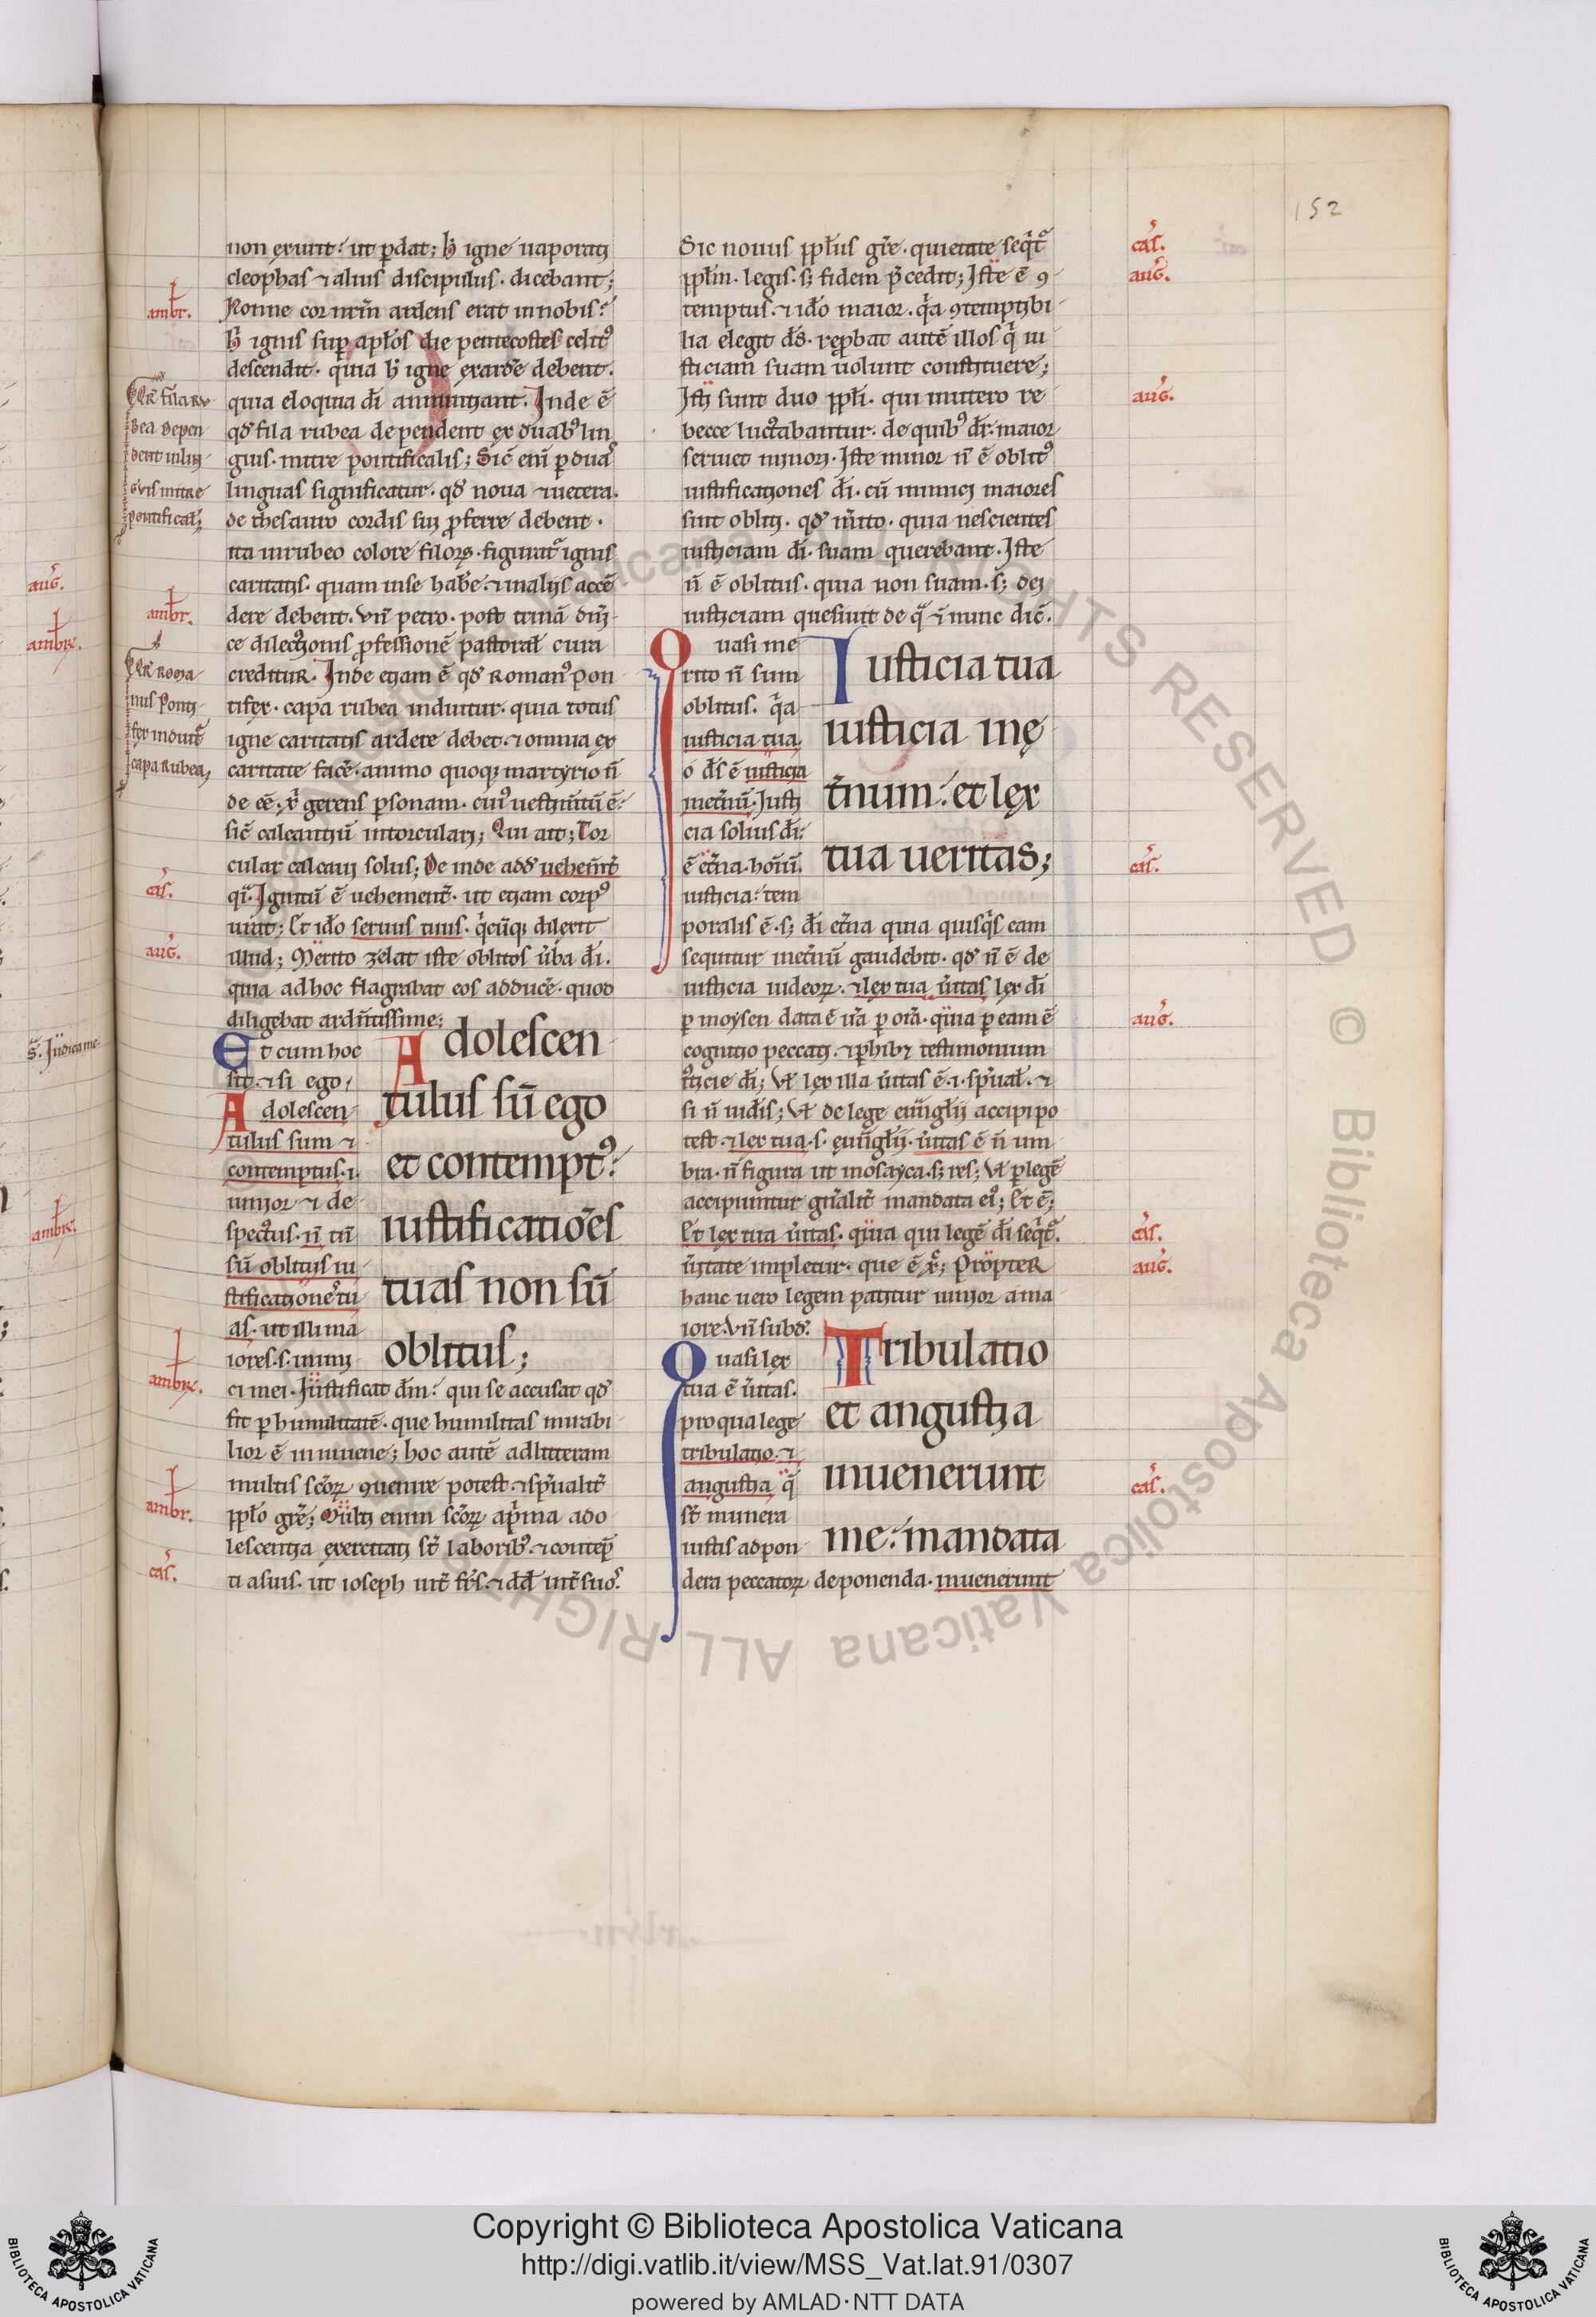 152
non exurit: ut ꝑdat; h̄ igne uaporatꝫ
cleophas ⁊ alius discipulus. dicebant;
Nonne cor nr̄m ardens erat in nobis?
h̄ ignis sup apłos die pentecostes celitꝰ
descendit. quia h̄ igne exardẽ debent.
quia eloquia dī annuntiant. Inde ē
qd̓ fila rubea dependent ex duabꝰ lin
guis mitre pontificalis; Sic̄ eni ꝑ duas
linguas significatur. qd̓ noua ⁊ uetera.
de thesauro cordis sui ꝓferre debent.
ita in rubeo colore filoꝝ. figurat᷑ ignis
caritatis. quam in se habẽ. ⁊ in aliis accē
dere debent. Vn̄ petro. post trinā
ce dilectionis ꝓfessionē pastoral̄ cura
creditur. Inde etiam ē qd̓ romanꝰ pon
tifex. capa rubea induitur. quia totus
igne caritatis ardere debet. ⁊ omnia ex
caritate facẽ. animo quoqꝫ martyrio n̄
de ēē; gerens ꝑsonam.
sic̄ calcantiū in torculari; Qui ait; Tor
cular calcaui solus; De inde add̓ uehem̄t̄
Ignitū ē uehement̄. ut etiam corpꝰ
; Et iđo seruus tuus. dilexit
illud; Merito zelat iste oblitos ūba dī.
quia ad hoc flagrabat eos adducẽ. quod
diligebat ard̄ntissime;
Et cum hoc
sit. ⁊ si ego
Adolescen
tulus sum ⁊
contemptus .i.
iunior ⁊ de
spectus. n̄ tn̄
sū oblitus iu
stificationes tu
as. ut illi ma
iores .s. inimi
ci mei. Iustificat dm̄: qui se accusat qd̓
fit ꝑ humilitatē. que humilitas mirabi
lior ē in iuuene; hoc autē ad litteram
multis sc̄oꝝ ꝯuenire potest ⁊ spūalit̄
ppło gr̄e; Multi enim sc̄oꝝ a pͥma ado
lescentia exercitati st̄ laboribꝰ. ⁊ contēp
ti a suis. ut ioseph int̄ fr̄s. ⁊ dd̄ int̄ suos.
Adolescen
tulus sū ego
et contemptꝰ:
iustificatiōes
tuas non sū
oblitus;
Sic nouus ppłus gr̄e. quietate seqͥt᷑
ppłm. legis. sꝫ fidem p̄cedit; Iste ē ꝯ
temptus. ⁊ iđo maior. qͣa ꝯtemptibi
lia elegit ds̄. reꝓbat autē illos qͥ iu
sticiam suam uolunt constituere;
Isti sunt duo ppłi. qui in utero re
becce luctabantur. de quibꝰ dr̄. maior
seruiet minori. Iste minor n̄ ē oblitꝰ
iustificationes dī. cū inimici maiores
sint obliti. qd̓ m̄ito. quia nescientes
iusticiam dī. suam querebant. Iste
n̄ ē oblitus. quia non suam. sꝫ dei
iusticiam quesiuit de qͣ ⁊ nunc dic̄.
Quasi me
rito n̄ sum
oblitus. qͣa
iusticia tua
o ds̄ ē iusticia
in et̄nū. Iusti
cia solius dī:
ē et̄na. hoīū
iusticia: tem
poralis ē. sꝫ dī et̄na quia quisqͥs eam
sequitur in et̄nū gaudebit. qd̓ n̄ ē de
iusticia iudeoꝝ. ⁊ lex tua ūitas lex dī
ꝑ moysen data ē quia ꝑ eam ē
cognitio peccati. ⁊ ꝑhibꝫ testimonium
iusticie dī; Vł lex illa ūitas ē .i. spūal̄. ⁊
si n̄ iudīs; Vł de lege euūgłii accipi po
test. ⁊ lex tua .s. euūgłii. ūitas ē n̄ um
bra. n̄ figura ut mosayca. sꝫ res; Vł ꝑ legē
accipiuntur gn̄alit̄ mandata eiꝰ; Et ē;
Et lex tua ūitas. quia qui legē dī seqͥt᷑.
ūitate impletur. que ē xp̄c; Propter
hanc uero legem patitur iunior a ma
iore. Vn̄ subd̓.
Quasi lex
tua ē ūitas.
pro qua lege
tribulatio ⁊
angustia q̄
st̄ munera
iustis ad pon
dera peccatoꝝ deponenda. inuenerunt
Iusticia tua
iusticia in ę
t̄num: et lex
tua ueritas;
Tribulatio
et angustia
inuenerunt
me: mandata
ambr.
Qr̄ fila ru
bea depen
dent in lin
guis mitre
pontifical̄
ambr.
Qr̄ roma
nus ponti
fex induit᷑
capa rubea
cas.
aug.
ambr.
ambr.
cas.
cas.
aug.
aug.
cas.
aug.
cas.
aug.
cas.
aug.
ambr.
Iudica me.
ambr.
Copyright © Biblioteca Apostolica Vaticana
http://digi.vatlib.it/view/MSS_Vat.lat.91/0307
powered by AMLAD·NTT DATA
BIBLIOTECA APOSTOLICA VATICANA
BIBLIOTECA APOSTOLICA VATICANA
Biblioteca Apostolica Vaticana ALL RIGHTS RESERVED ©